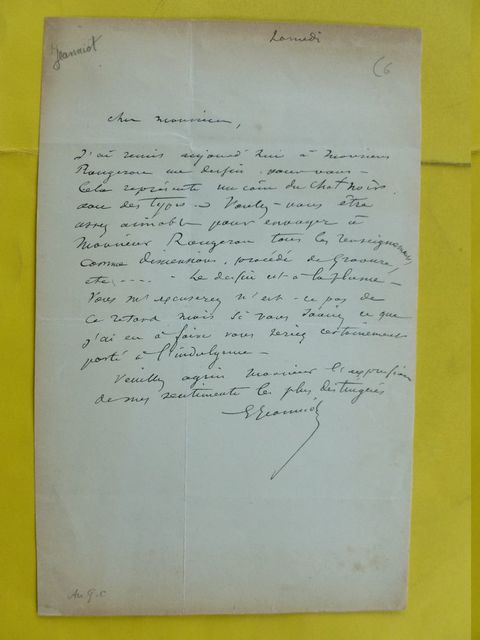 Jeanniot
Samedi
(6
Cher monsieur,
J'ai remis aujourd'hui à Monsieur
Rougeron un dessin pour vous -
Cela représente un coin du Chat noir.
des types. Voulez-vous être
assez aimable pour envoyer à
Monsieur Rougeron tous les renseignements,
comme dimensions, procédé de Gravure,
etc, ---- - Le dessin est à la plume -
Vous m'excuserez n'est-ce pas de
ce retard mais si vous saviez ce que
j'ai eu à faire vous seriez certainement
porté à l'indulgence -
Veuillez agréer Monsieur l'expression
de mes sentiments les plus distingués
G Jeanniot